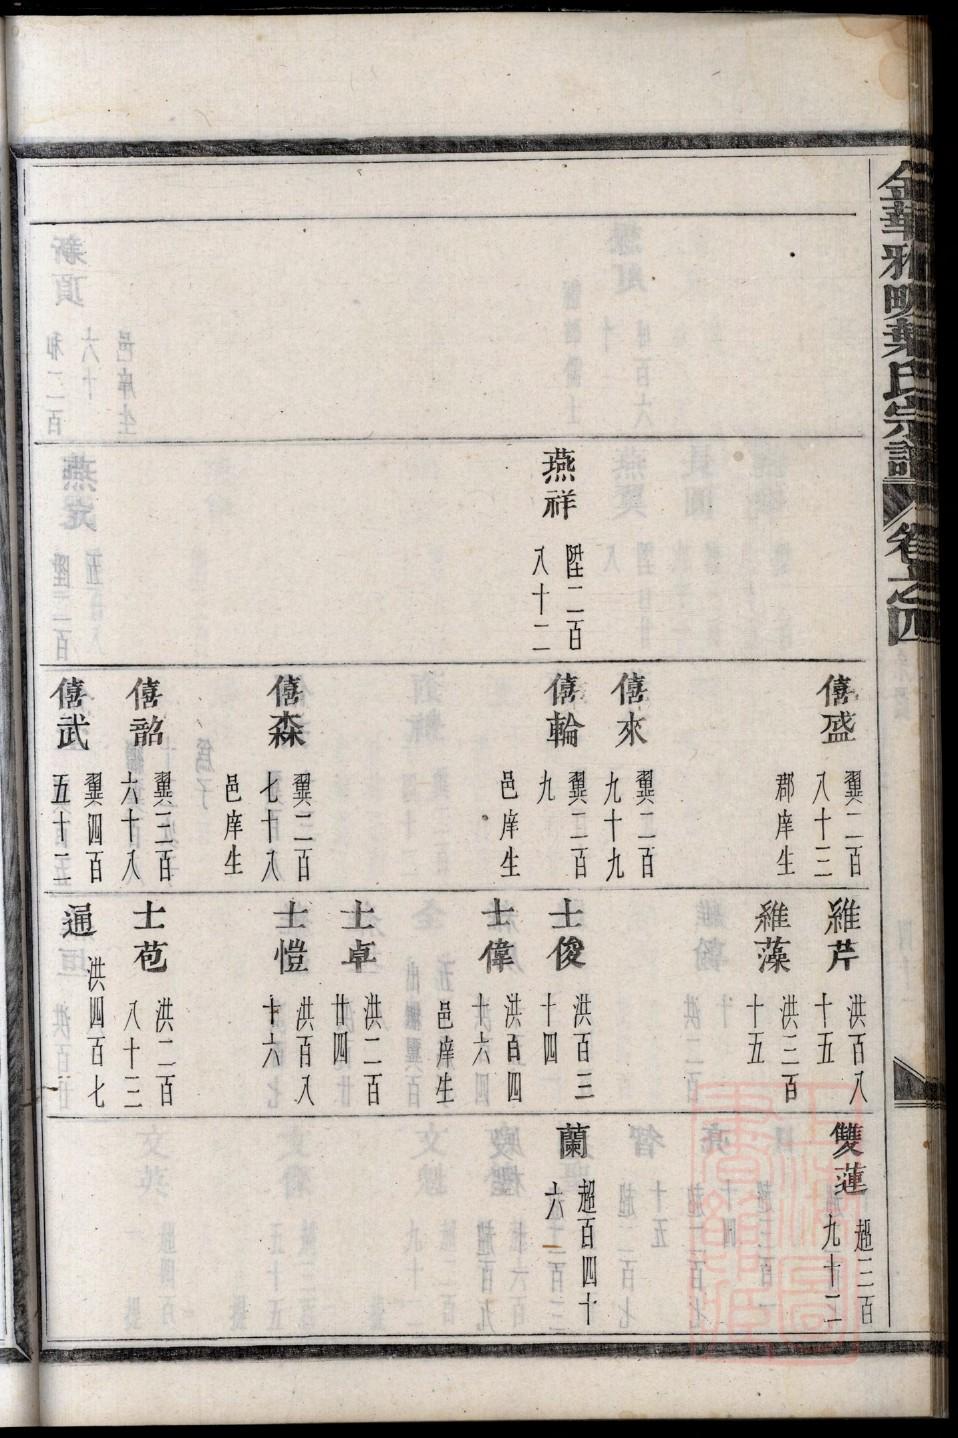 金華雅畈葉氏宗譜 卷之四
燕祥 陞二百八十二
僖盛 翼二百八十三 郡庠生
僖來 翼二百九十九
僖輪 翼二百九 邑庠生
僖森 翼二百七十八 邑庠生
僖韶 翼三百六十八
僖武 翼四百五十二
維芹 洪百八十五
維藻 洪三百十五
士俊 洪百三十四
士偉 洪百四十六 邑庠生
士卓 洪二百廿四
士愷 洪百八十六
士苞 洪二百八十三
通 洪四百七
雙蓮 超三百九十二
蘭 超百四十六